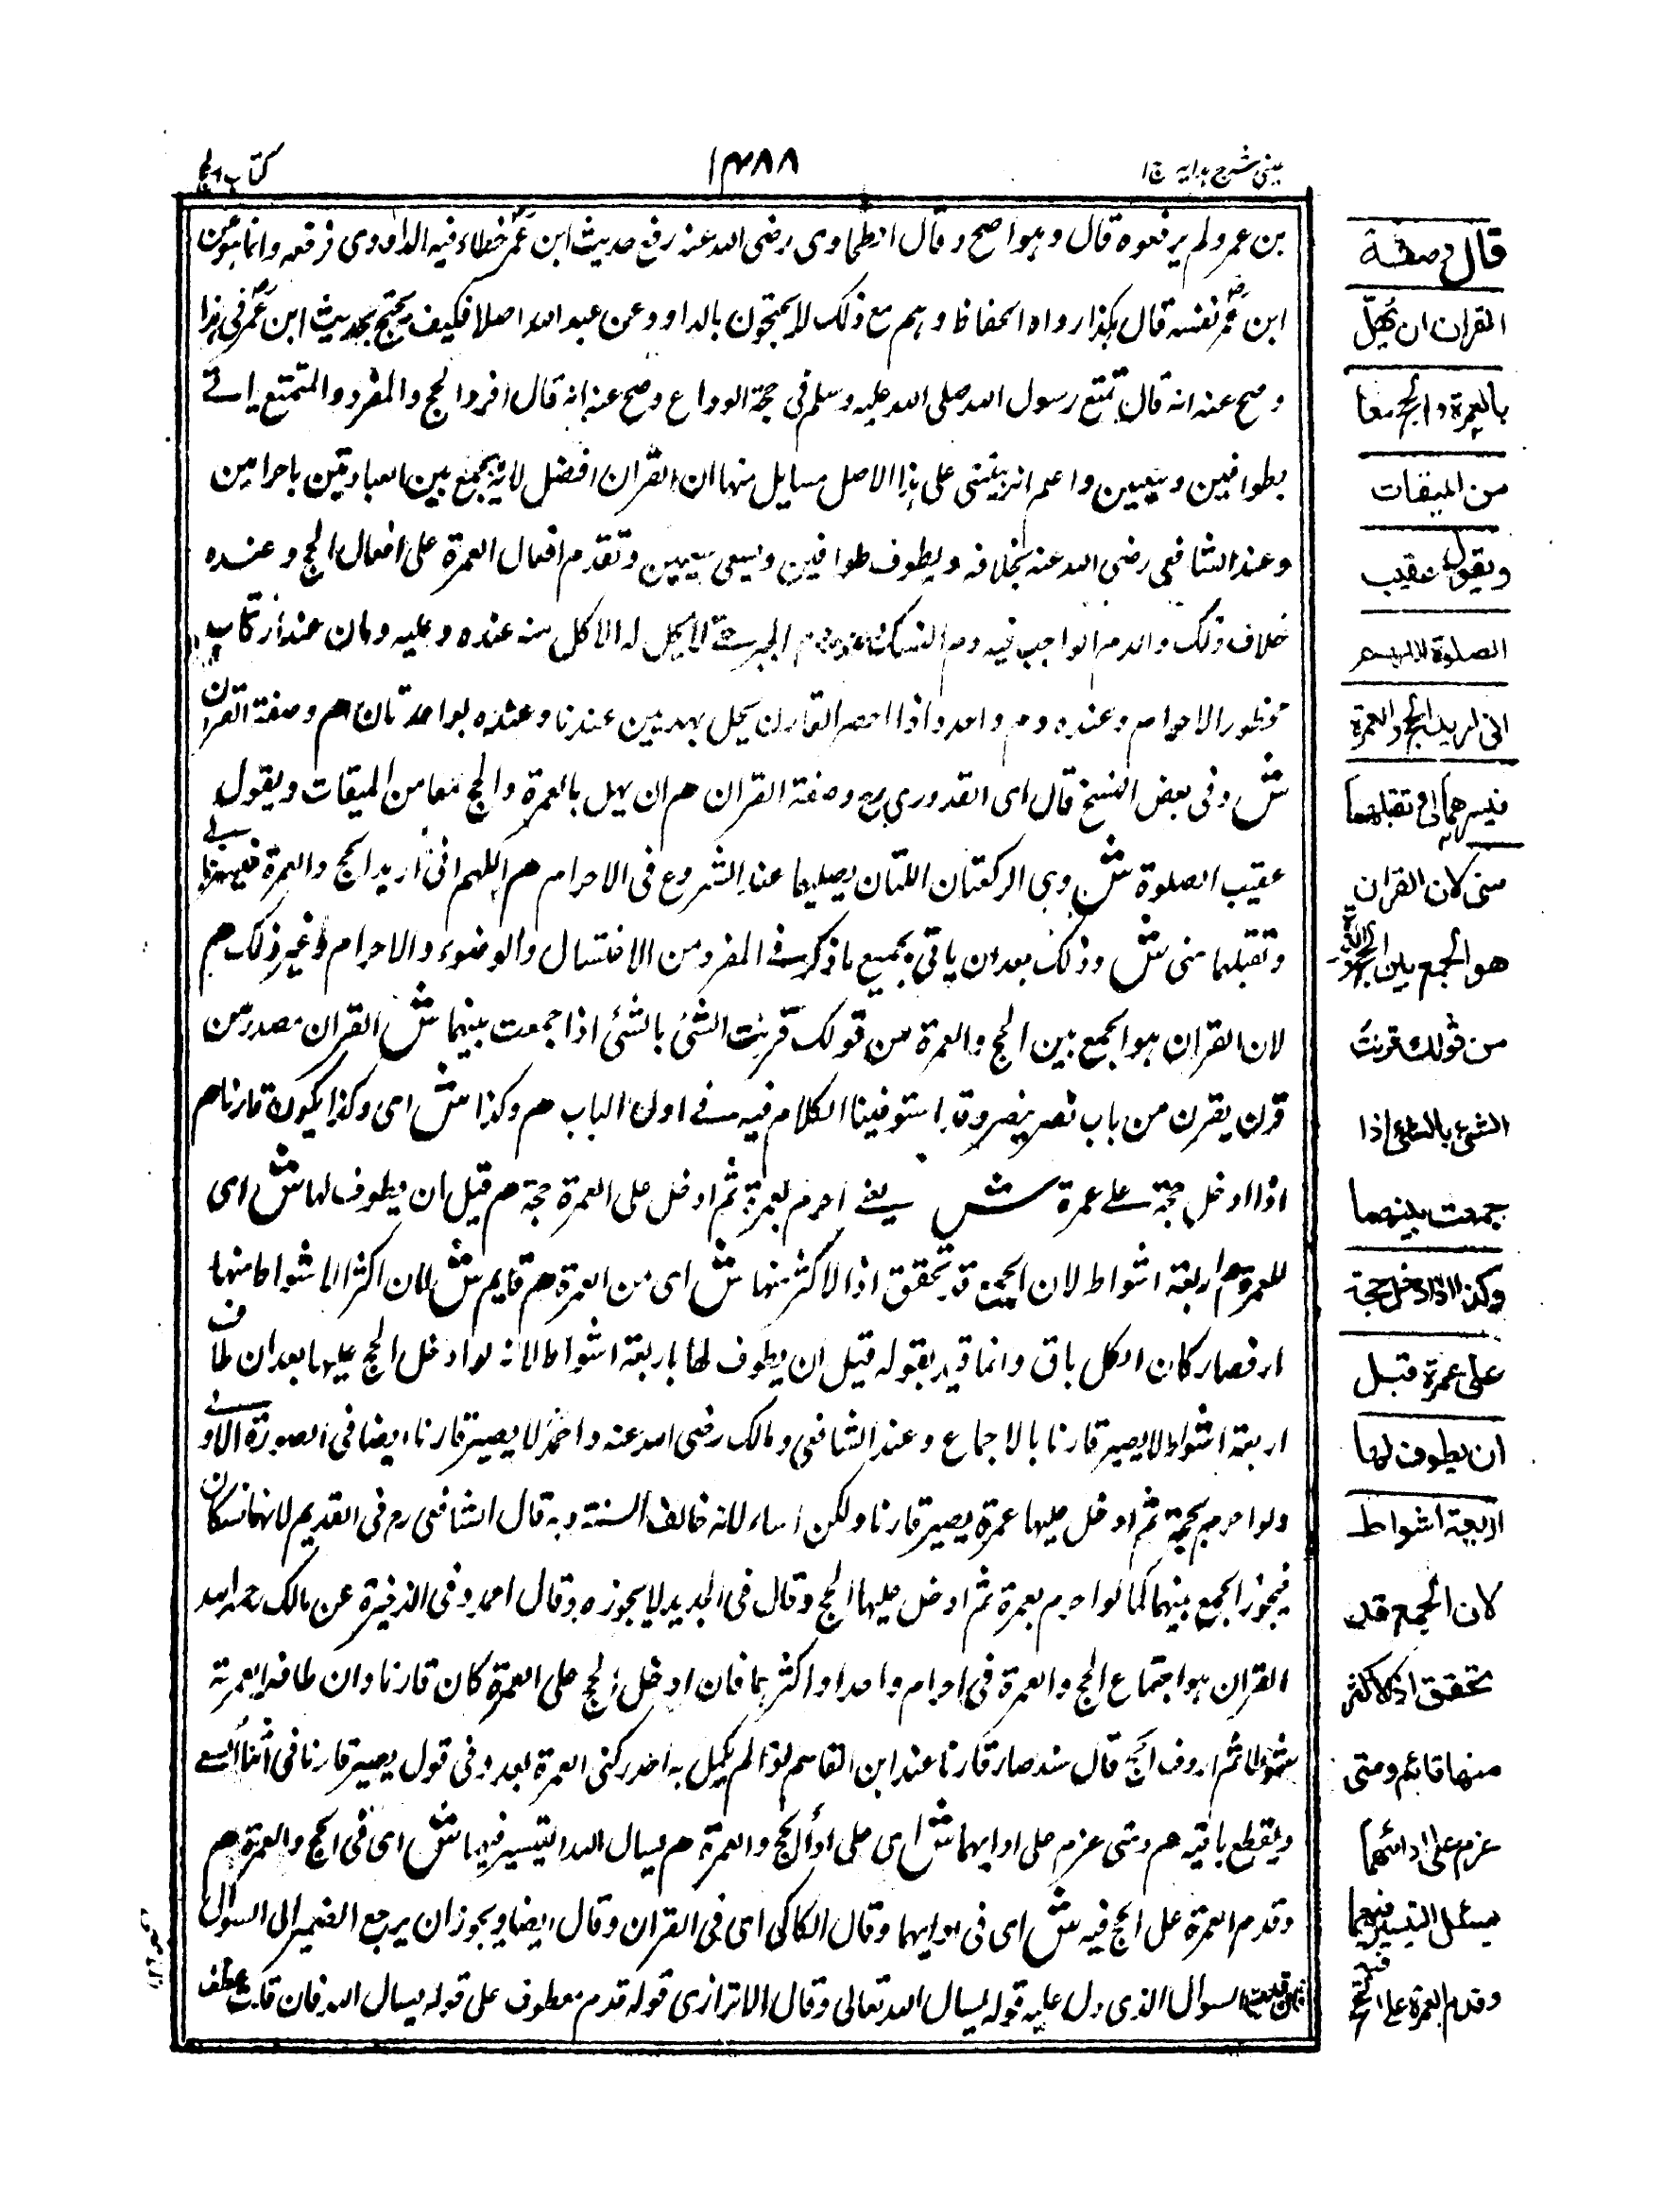 عینی شرح ہدایہ ج ۱
۱۴۸۸
کتاب الحج
بن عمر ولم یرفعوہ قال وہو اصح وقال الطحاوی رضی اللہ عنہ رفع حدیث ابن عمر خطاء فیہ الداوودی فرفعہ وانما ہو عن
ابن عمر نفسہ قال ہکذا رواہ الحفاظ وہم مع ذلک لا یحتجون بالداوود عن عبد اللہ اصلا فکیف یحتج بحدیث ابن عمر فی ہذا
وصح عنہ انہ قال تمتع رسول اللہ صلی اللہ علیہ وسلم فی حجۃ الوداع وصح عنہ انہ قال افرد الحج والمفرد والمتمتع یاتے
بطوافین وسعیین واعلم انہ یبتنی علی ہذا الاصل مسایل منہا ان القران افضل لانہ یجمع بین العبادتین باحرامین
وعند الشافعی رضی اللہ عنہ بخلافہ ویطوف طوافین ویسعی سعیین وتقدم افعال العمرۃ علی افعال الحج وعندہ
خلاف ذلک والدم الواجب فیہ دم النسک وعندہ دم الجبر حتے لا یحل لہ الاکل منہ عندہ وعلیہ دمان عند ارتکاب
محظور الاحرام وعندہ دم واحد واذا احصر القارن یحل بہدیین عندنا وعندہ بواحد تان ھم وصفۃ القران
ش وفی بعض النسخ قال ای القدوری رح وصفۃ القران ھم ان یہل بالعمرۃ والحج معا من المیقات ویقول
عقیب الصلوۃ ش وہی الرکعتان اللتان یصلیہا عند الشروع فی الاحرام ھم اللہم انی ارید الحج والعمرۃ فیسرہما لے
وتقبلہما منی ش وذلک بعد ان یاتی بجمیع ما ذکر فے المفرد من الاغتسال والوضوء والاحرام وغیر ذلک ھم
لان القران ہو الجمع بین الحج والعمرۃ من قولک قرنت الشئ بالشئ اذا جمعت بینہما ش القران مصدر من
قرن یقرن من باب نصر ینصر وقد استوفینا الکلام فیہ فے اول الباب ھم وکذا ش ای وکذا یکون قارنا ھم
اذا ادخل حجۃ علے عمرۃ ش یعنے احرم بعمرۃ ثم ادخل علی العمرۃ حجۃ ھم قبل ان یطوف لہا ش ای
للعمرۃ ھم اربعۃ اشواط لان الجمع قد تحقق اذ الاکثر منہا ش ای من العمرۃ ھم قایم ش لان اکثر الاشواط منہا
فصار کان الکل باق وانما قید بقولہ قبل ان یطوف لہا باربعۃ اشواط لانہ لو ادخل الحج علیہا بعد ان طاف
اربعۃ اشواط لا یصیر قارنا بالاجماع وعند الشافعی ومالک رضی اللہ عنہ واحمد لا یصیر قارنا ایضا فی الصورۃ الاولے
ولو احرم بحجۃ ثم ادخل علیہا عمرۃ یصیر قارنا ولکن اساء لانہ خالف السنۃ وبہ قال الشافعی رح فی القدیم لانہما نسکان
فیجوز الجمع بینہما کما لو احرم بعمرۃ ثم ادخل علیہا الحج وقال فی الجدید لا یجوزہ وقال احمد وفی الذخیرۃ عن مالک رحمہ اللہ
القران ہو اجتماع الحج والعمرۃ فی احرام واحد او اکثرہما فان ادخل الحج علی العمرۃ کان قارنا وان طاف العمرتہ
شوطا ثم اردف الحج قال سند صار قارنا عند ابن القاسم لو لم یکمل بہ احد رکنی العمرۃ بعد وفی قول یصیر قارنا فی اثناء السعے
ویقطع باقیہ ھم ومتی عزم علی ادایہما ش ای علی اداء الحج والعمرۃ ھم یسال اللہ التیسیر فیہما ش ای فی الحج والعمرۃ ھم
وقدم العمرۃ علی الحج فیہ ش ای فی ادایہما وقال الکاکی ای فی القران وقال ایضا ویجوز ان یرجع الضمیر الی السوال
السوال الذی دل علیہ قولہ یسال اللہ تعالی وقال الاترازی قولہ قدم معطوف علی قولہ یسال اللہ فان قلت عطف
قال وصفۃ
القران ان یھلّ
بالعمرۃ والحج معا
من المیقات
ویقول عقیب
الصلوۃ اللہم
انی ارید الحج والعمرۃ
فیسرھما لی وتقبلھما
منی لان القران
ھو الجمع بین الحج والعمرۃ
من قولک قرنت
الشیء بالشیء اذا
جمعت بینھما
وکذا اذا ادخل حجۃ
علی عمرۃ قبل
ان یطوف لھا
اربعۃ اشواط
لان الجمع قد
تحقق اذ الاکثر
منھا قائم ومتی
عزم علی ادائھما
یسئل التیسیر فیھما
وقدم العمرۃ علی الحج فیہ